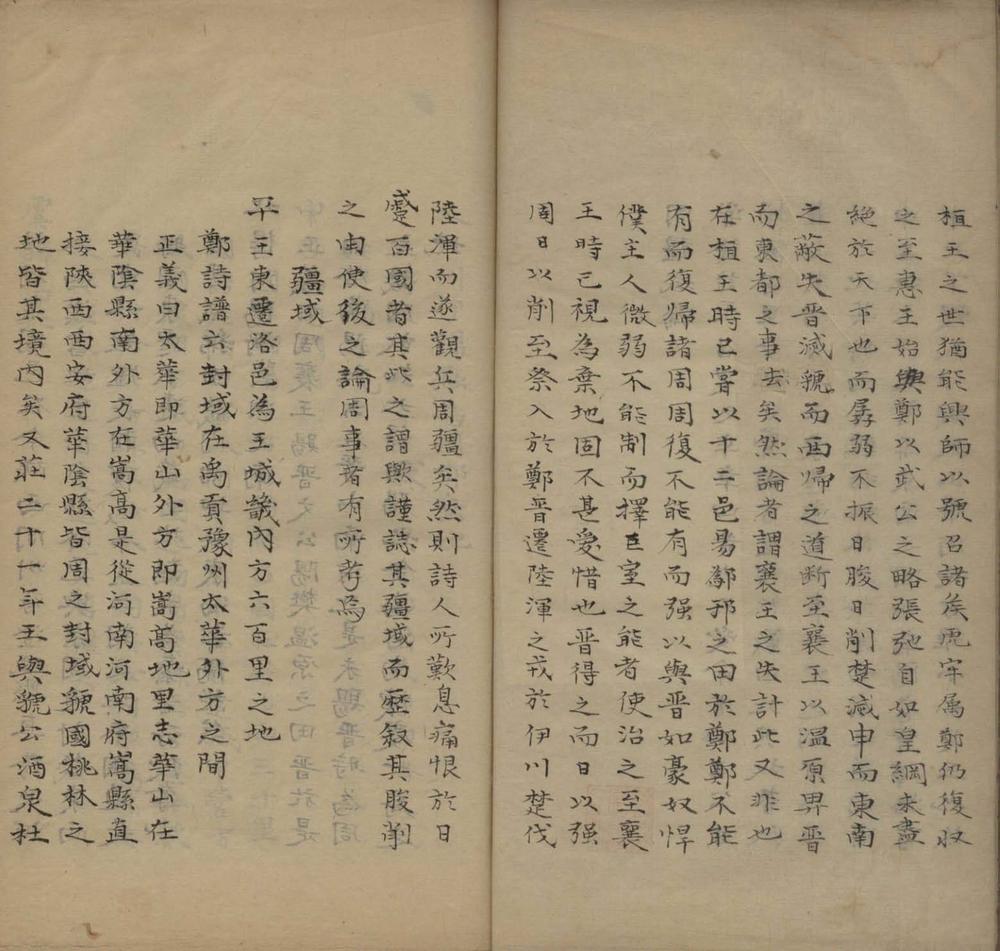 桓王之世猶能興師以號召諸侯虎牢属鄭仍復収
之至惠王始與鄭以武公之略張弛自如皇綱未盡
絶於天下也而孱弱不振日朘日削楚滅申而東南
之蔽失晋滅虢而西歸之道断至襄王以溫原畀晋
而東都之事去矣然論者謂襄王之失計此又非也
在桓王時已嘗以十二邑易鄔邘之田於鄭鄭不能
有而復歸諸周周復不能有而强以與晋如豪奴悍
僕主人微弱不能制而擇巨室之能者使治之至襄
王時已視為棄地固不甚愛惜也晋得之而日以强
周日以削至祭入於鄭晋遷陸渾之戎於伊川楚伐
陸渾而遂觀兵周疆矣然則詩人所歎息痛恨於日
蹙百國者其此之謂歟謹誌其疆域而歷叙其朘削
之由使後之論周事者有所考焉
疆域
平王東遷洛邑為王城畿內方六百里之地
鄭詩譜云封域在禹貢豫州太華外方之間
正義曰太華即華山外方即嵩高地里志華山在
華隂縣南外方在嵩高是從河南河南府嵩縣直
接陝西西安府華隂縣皆周之封域虢國桃林之
地皆其境內矣又莊二十一年王與虢公酒泉杜